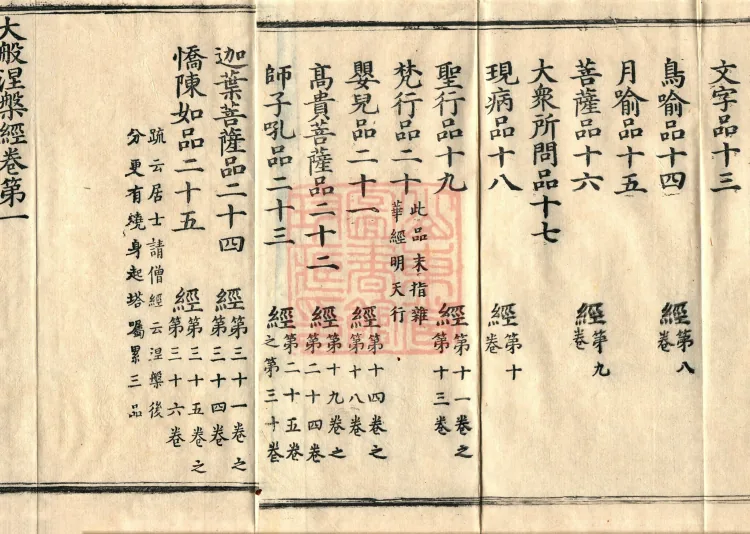 文字品十三
鳥喻品十四 經第八卷
月喻品十五
菩薩品十六 經第九卷
大衆所問品十七
現病品十八 經第十卷
聖行品十九 經第十一卷之第十三卷
梵行品二十 此品末指雜華經明天行
嬰兒品二十一 經第十四卷之第十八卷
高貴菩薩品二十二 經第十九卷之第二十四卷
師子吼品二十三 經第二十五卷之第三十卷
迦葉菩薩品二十四 經第三十一卷之第三十四卷
憍陳如品二十五 經第三十五卷之第三十六卷
疏云居士請僧經云涅槃後
分更有燒身起塔囑累三品
大般涅槃經卷第一